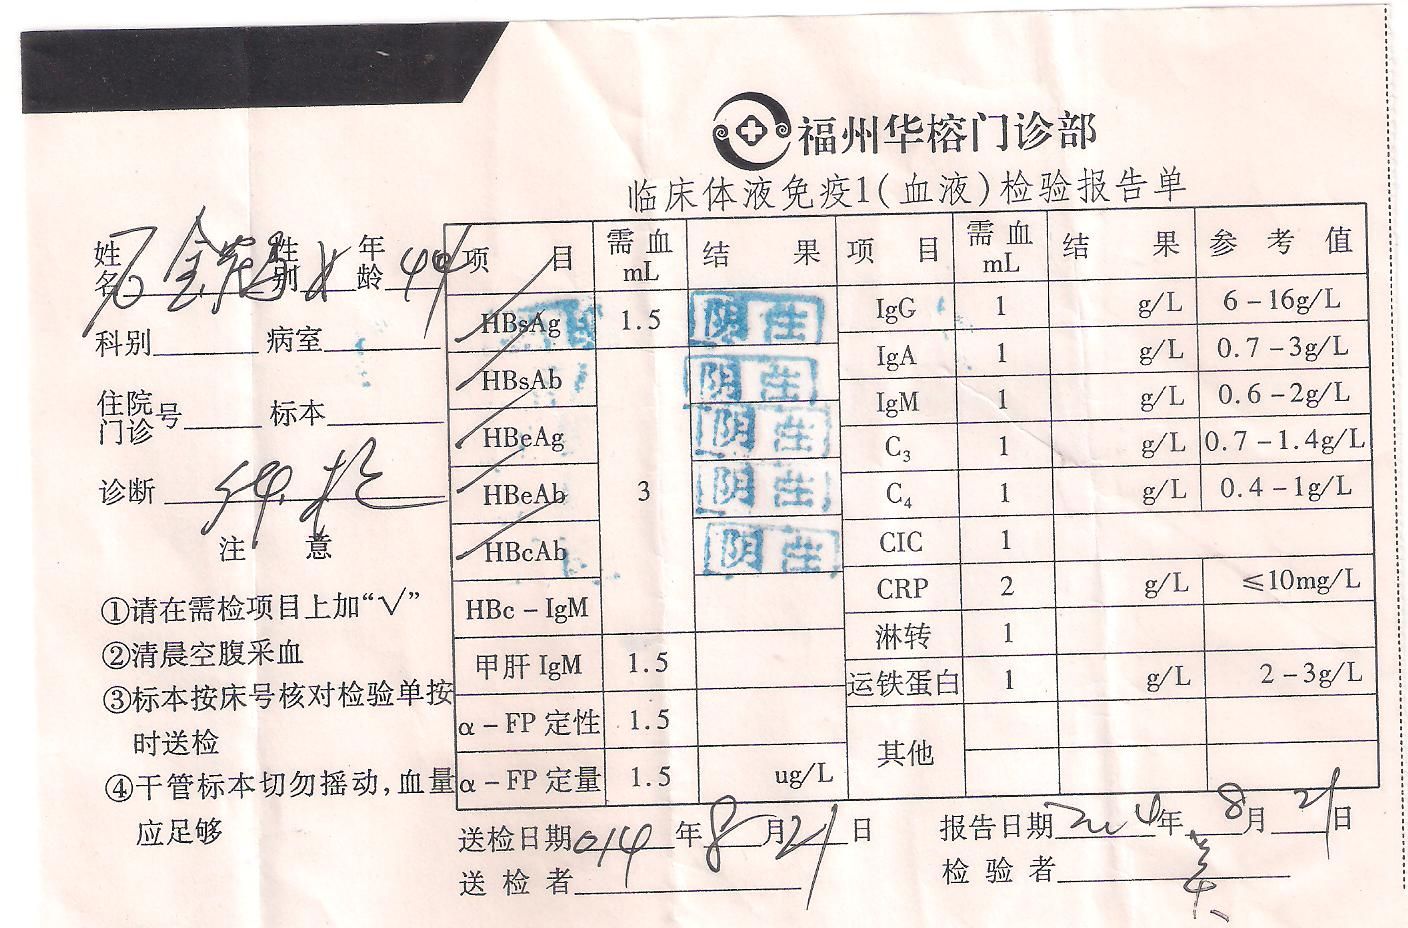 福州华榕门诊部
临床体液免疫1(血液)检验报告单
姓名 性别 女 年龄 44
科别 病室
住院门诊号 标本
诊断
注 意
①请在需检项目上加“√”
②清晨空腹采血
③标本按床号核对检验单按
时送检
④干管标本切勿摇动,血量
应足够
项 目 需血mL 结 果 项 目 需血mL 结 果 参 考 值
HBsAg 1.5 阴性 IgG 1 g/L 6-16g/L
HBsAb 阴性 IgA 1 g/L 0.7-3g/L
HBeAg 阴性 IgM 1 g/L 0.6-2g/L
C3 1 g/L 0.7-1.4g/L
HBeAb 3 阴性 C4 1 g/L 0.4-1g/L
HBcAb 阴性 CIC 1
HBc-IgM CRP 2 g/L ≤10mg/L
淋转 1
甲肝 IgM 1.5 运铁蛋白 1 g/L 2-3g/L
α-FP 定性 1.5 其他
α-FP 定量 1.5 ug/L
送检日期 014 年 8 月 21 日 报告日期 年 8 月 21 日
送 检 者 检 验 者